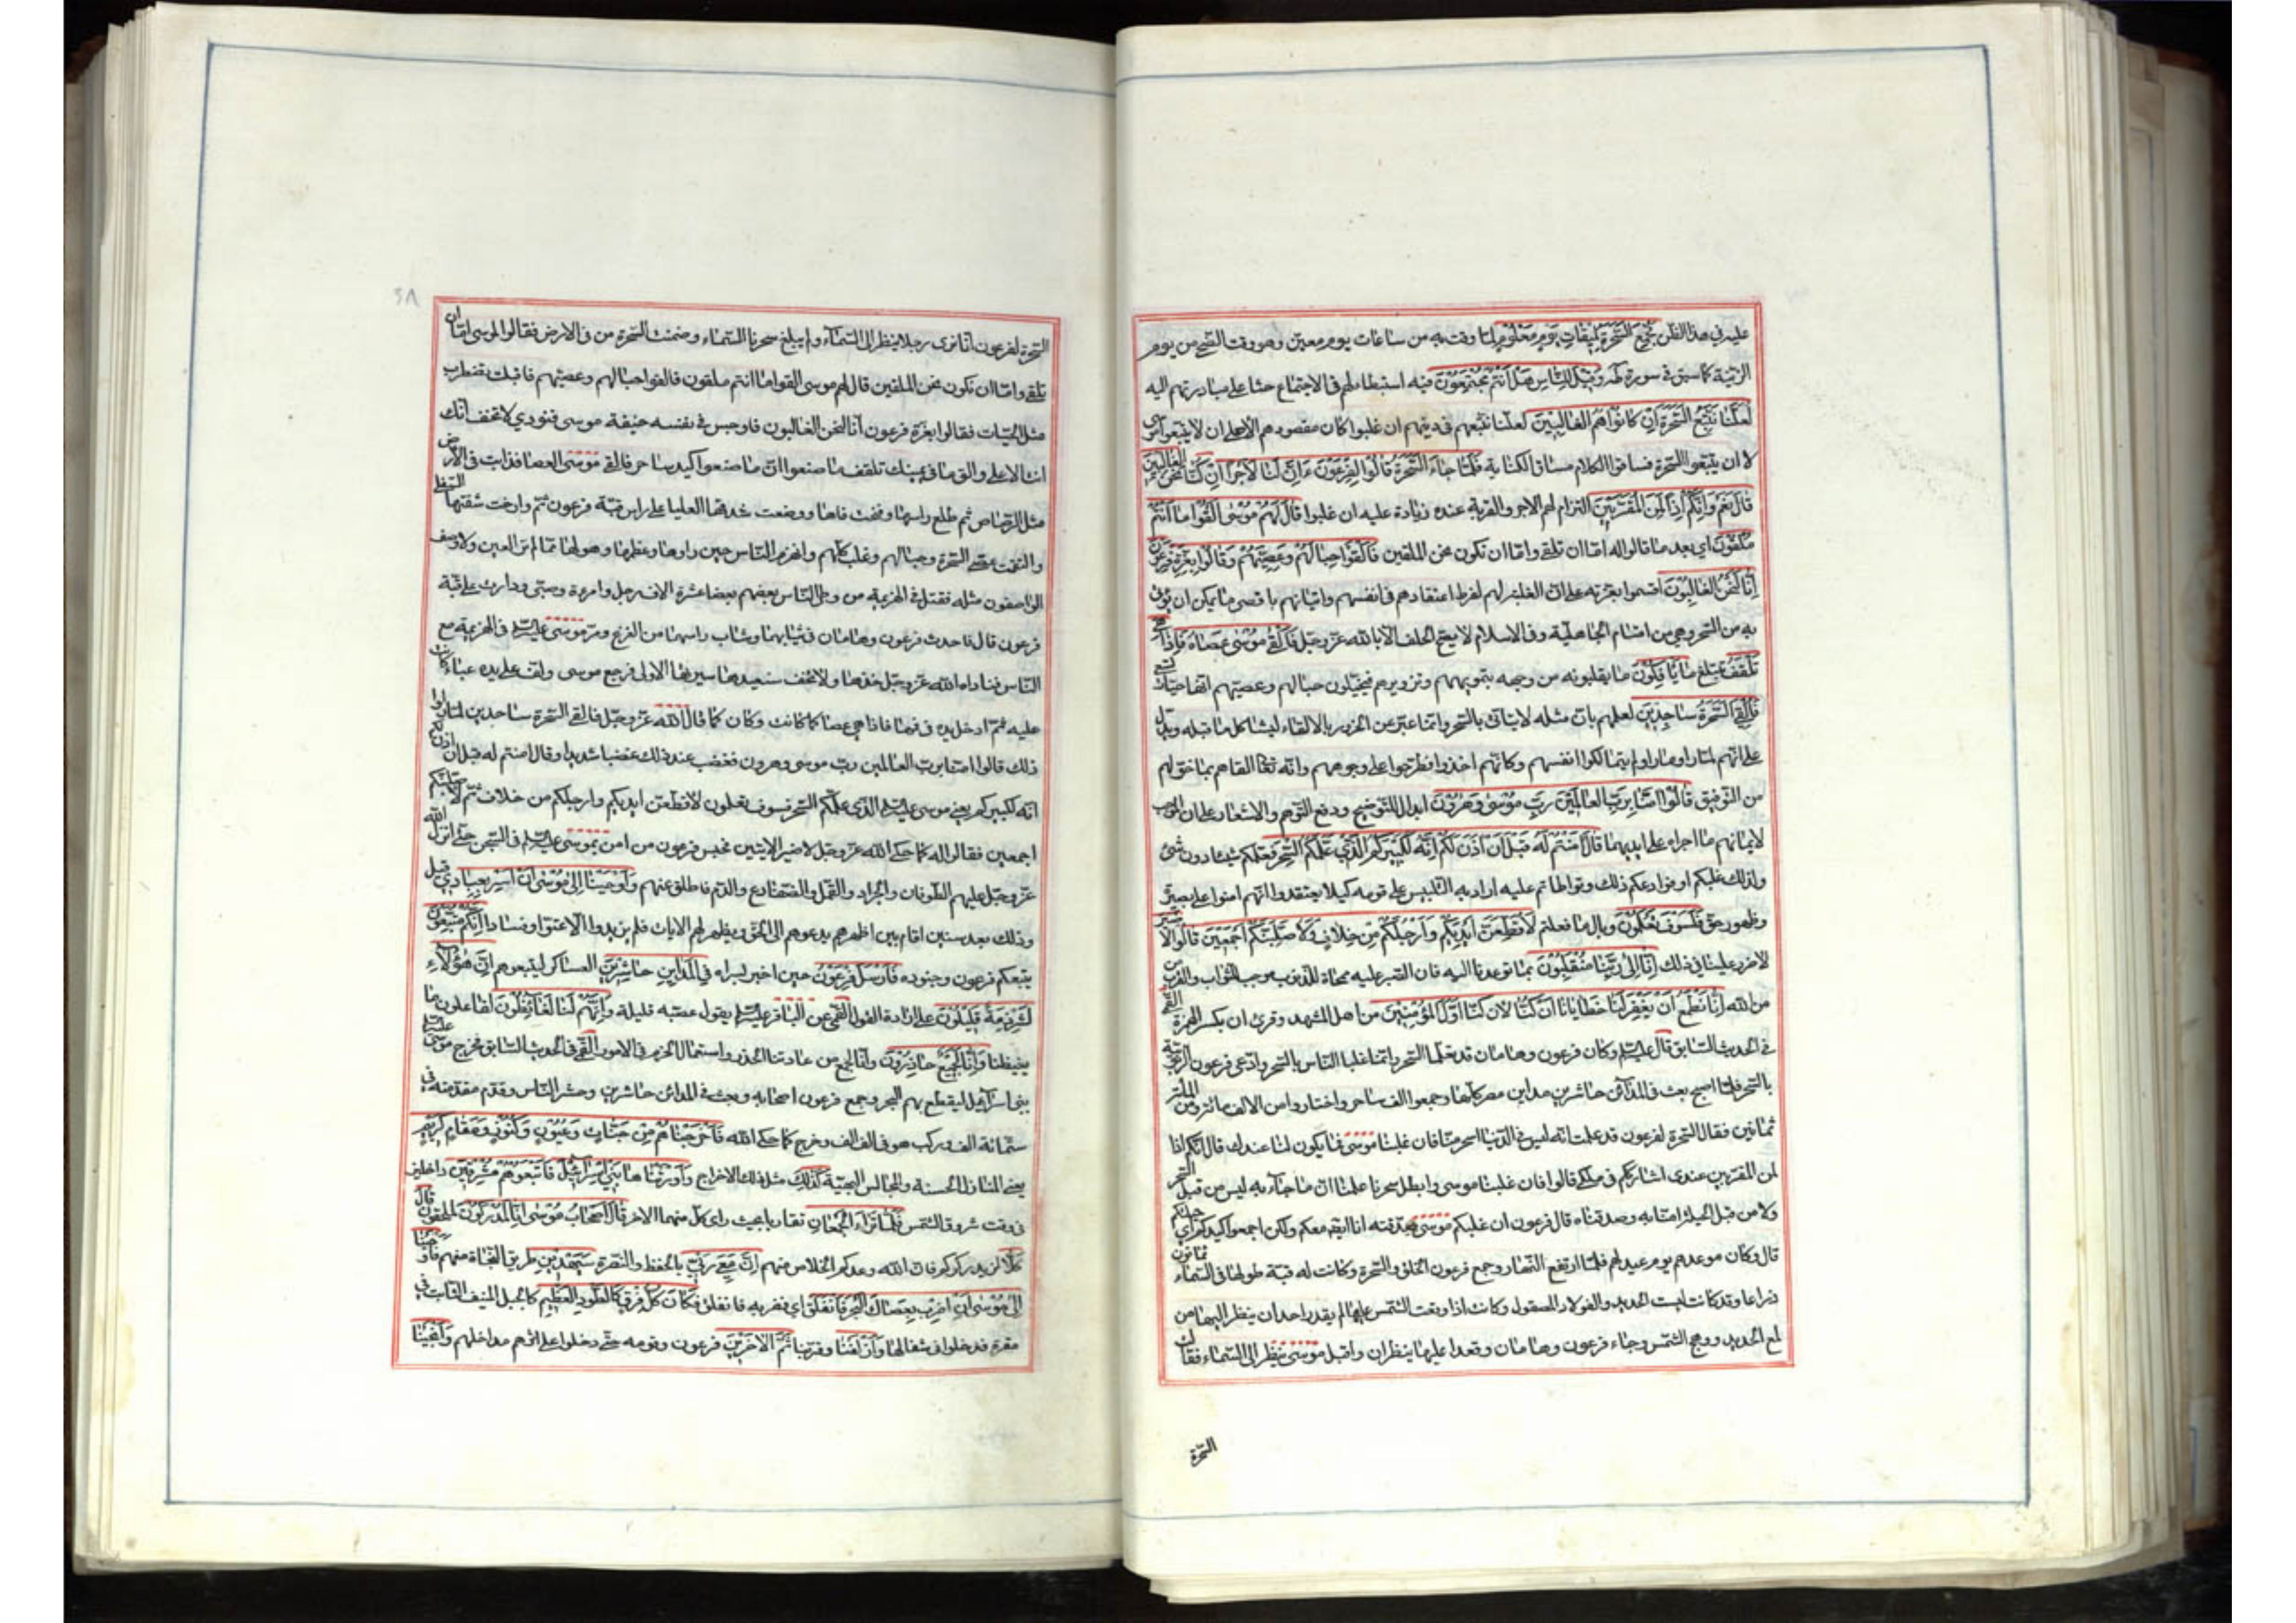 عليه في هذا الفن فجمع السحرة لميقات يوم معلوم لما وقت به من ساعات يوم معين وهو وقت الضحى من يوم
الزينة كما سبق في سورة طه وقيل للناس هل انتم مجتمعون فيه استبطاء لهم في الاجتماع حثا على مبادرتهم اليه
لعلنا نتبع السحرة ان كانوا هم الغالبين لعلنا نتبعهم في دينهم ان غلبوا كان مقصودهم الاصلي ان لا يتبعوا موسى
لا ان يتبعوا السحرة فساقوا الكلام مساق الكناية فلما جاء السحرة قالوا لفرعون ءان لنا لاجرا ان كنا نحن الغالبين
قال نعم وانكم اذا لمن المقربين التزام لهم الاجر والقربة عنده زيادة عليه ان غلبوا قال لهم موسى القوا ما انتم
ملقون اي بعد ما قالوا له اما ان تلقي واما ان نكون نحن الملقين فالقوا حبالهم وعصيهم وقالوا بعزة فرعون
انا لنحن الغالبون اقسموا بعزته على ان الغلبة لهم لفرط اعتقادهم في انفسهم واتيانهم باقصى ما يمكن ان يؤتى
به من السحر وهي من اقسام الجاهلية وفي الاسلام لا يصح الحلف الا بالله عز وجل فالقى موسى عصاه فاذا هي
تلقف تبتلع ما يافكون ما يقلبونه من وجهه بتمويههم وتزويرهم فيخيلون حبالهم وعصيهم انها حيات تسعى
فالقي السحرة ساجدين لعلمهم بان مثله لا يتاتى بالسحر وانما عبر عن الخرور بالالقاء ليشاكل ما قبله ويدل
على انهم لما راوا ما راوا لم يتمالكوا انفسهم وكانهم اخذوا فطرحوا على وجوههم وانه تعالى القاهم بما خولهم
من التوفيق قالوا امنا برب العالمين رب موسى وهرون ابدال للتوضيح ودفع التوهم والاشعار على ان الموجب
لايمانهم ما اجراه على ايديهما قال امنتم له قبل ان اذن لكم انه لكبيركم الذي علمكم السحر فعلمكم شيئا دون شئ
ولذلك غلبكم او فوادعكم ذلك وتواطاتم عليه اراد به التلبيس على قومه كيلا يعتقدوا انهم امنوا على بصيرة
وظهور حق فلسوف تعلمون وبال ما فعلتم لاقطعن ايديكم وارجلكم من خلاف ولاصلبنكم اجمعين قالوا لا ضير
لا ضرر علينا في ذلك انا الى ربنا منقلبون بما توعدنا اليه فان الصبر عليه محاة للذنوب موجب للثواب والقرب من
من الله انا نطمع ان يغفر لنا ربنا خطايانا ان كنا لان كنا اول المؤمنين من اهل المشهد وقرئ ان بكسر الهمزة القمي
في الحديث السابق قال عليه السلام وكان فرعون وهامان قد تعلما السحر وانما غلبا الناس بالسحر وادعى فرعون الربوبية
بالسحر فلما اصبح بعث في المدائن حاشرين مداين مصر كلها وجمعوا الف ساحر واختاروا من الالف مائة ومن المائة
ثمانين فقال السحرة لفرعون قد علمت انه ليس في الدنيا اسحر منا فان غلبنا موسى فما يكون لنا عندك قال انكم اذا
لمن المقربين عندي اشارككم في ملكي قالوا فان غلبنا موسى وابطل سحرنا علمنا ان ما جاء به ليس من قبل السحر
ولا من قبل الحيلة امنا به وصدقناه قال فرعون ان غلبكم موسى صدقته انا ايضا معكم ولكن اجمعوا كيدكم اي حيلتكم
قال وكان موعدهم يوم عيد لهم فلما ارتفع النهار وجمع فرعون الخلق والسحرة وكانت له قبة طولها في السماء ثمانون
ذراعا وقد كانت لبست الحديد والفولاد المصقول وكانت اذا وقعت الشمس عليها لم يقدر احد ان ينظر اليها من
لمع الحديد ووهج الشمس وجاء فرعون وهامان وقعدا عليها ينظران واقبل موسى ينظر الى السماء فقالت
السحرة
السحرة لفرعون انا نرى رجلا ينظر الى السماء ولم يبلغ سحرنا السماء وضمنت السحرة من في الارض فقالوا لموسى اما ان
تلقي واما ان نكون نحن الملقين قال لهم موسى القوا ما انتم ملقون فالقوا حبالهم وعصيهم فاقبلت تضطرب
مثل الحيات فقالوا بعزة فرعون انا لنحن الغالبون فاوجس في نفسه خيفة موسى فنودي لا تخف انك
انت الاعلى والق ما في يمينك تلقف ما صنعوا ان ما صنعوا كيد ساحر فالقى موسى العصا فذابت في الارض
مثل الرصاص ثم طلع راسها وفتحت فاها ووضعت شدقها العليا على راس قبة فرعون ثم دارت وارخت شفتها السفلى
والتقمت عصي السحرة وحبالهم وغلب كلهم وانهزم الناس حين راوها وعظمها وهولها مما لم تر العين ولا وصف
الواصفون مثله فقتل في الهزيمة من وطئ الناس بعضهم بعضا عشرة الاف رجل وامرءة وصبي ودارت على قبة
فرعون قال فاحدث فرعون وهامان في ثيابهما وشاب راسهما من الفزع ومر موسى عليه السلام في الهزيمة مع
الناس فناداه الله عز وجل خذها ولا تخف سنعيدها سيرتها الاولى فرجع موسى ولف على يده عباء كانت
عليه ثم ادخل يده في فمها فاذا هي عصا كما كانت وكان كما قال الله عز وجل فالقي السحرة ساجدين لما راوا
ذلك قالوا امنا برب العالمين رب موسى وهرون فغضب عند ذلك غضبا شديدا وقال امنتم له قبل ان اذن لكم
انه لكبيركم يعني موسى عليه السلام الذي علمكم السحر فسوف تعلمون لاقطعن ايديكم وارجلكم من خلاف ثم لاصلبنكم
اجمعين فقالوا له كما حكى الله عز وجل لا ضير الايتين فحبس فرعون من امن بموسى عليه السلام في السجن حتى انزل الله
عز وجل عليهم الطوفان والجراد والقمل والضفادع والدم فاطلق عنهم واوحينا الى موسى ان اسر بعبادي قيل
وذلك بعد سنين اقام بين اظهرهم يدعوهم الى الحق ويظهر لهم الايات فلم يزيدوا الا عتوا وفسادا انكم متبعون
يتبعكم فرعون وجنوده فارسل فرعون حين اخبر بسراه في المداين حاشرين العساكر ليتبعوهم ان هؤلاء
لشرذمة قليلون على ارادة القول القمي عن الباقر عليه السلام يقول عصبه قليلة وانهم لنا لغائظون لفاعلون ما
يغيظنا وانا لجميع حاذرون وانا لجمع من عادتنا الحذر واستعمال الحزم في الامور القمي في الحديث السابق فخرج موسى عليه السلام
ببني اسرائيل ليقطع بهم البحر وجمع فرعون اصحابه وبعث في المدائن حاشرين وحشر الناس وقدم مقدمته في
ستمائة الف وركب هو في الف الف وخرج كما حكى الله فاخرجناهم من جنات وعيون وكنوز ومقام كريم
يعني المنازل الحسنة والمجالس البهية كذلك مثل ذلك الاخراج واورثناها بني اسرائيل فاتبعوهم مشرقين داخلين
في وقت شروق الشمس فلما تراء الجمعان تقاربا بحيث راى كل منهما الاخر قال اصحاب موسى انا لمدركون لملحقون قال
كلا لن يدركوكم فان الله وعدكم الخلاص منهم ان معي ربي بالحفظ والنصرة سيهدين طريق النجاة منهم فاوحينا
الى موسى ان اضرب بعصاك البحر فانفلق اي فضربه فانفلق فكان كل فرق كالطود العظيم كالجبل المنيف الثابت في
مقره فدخلوا في شعابها وازلفنا وقربنا ثم الاخرين فرعون وقومه حتى دخلوا على اثرهم مداخلهم وانجينا